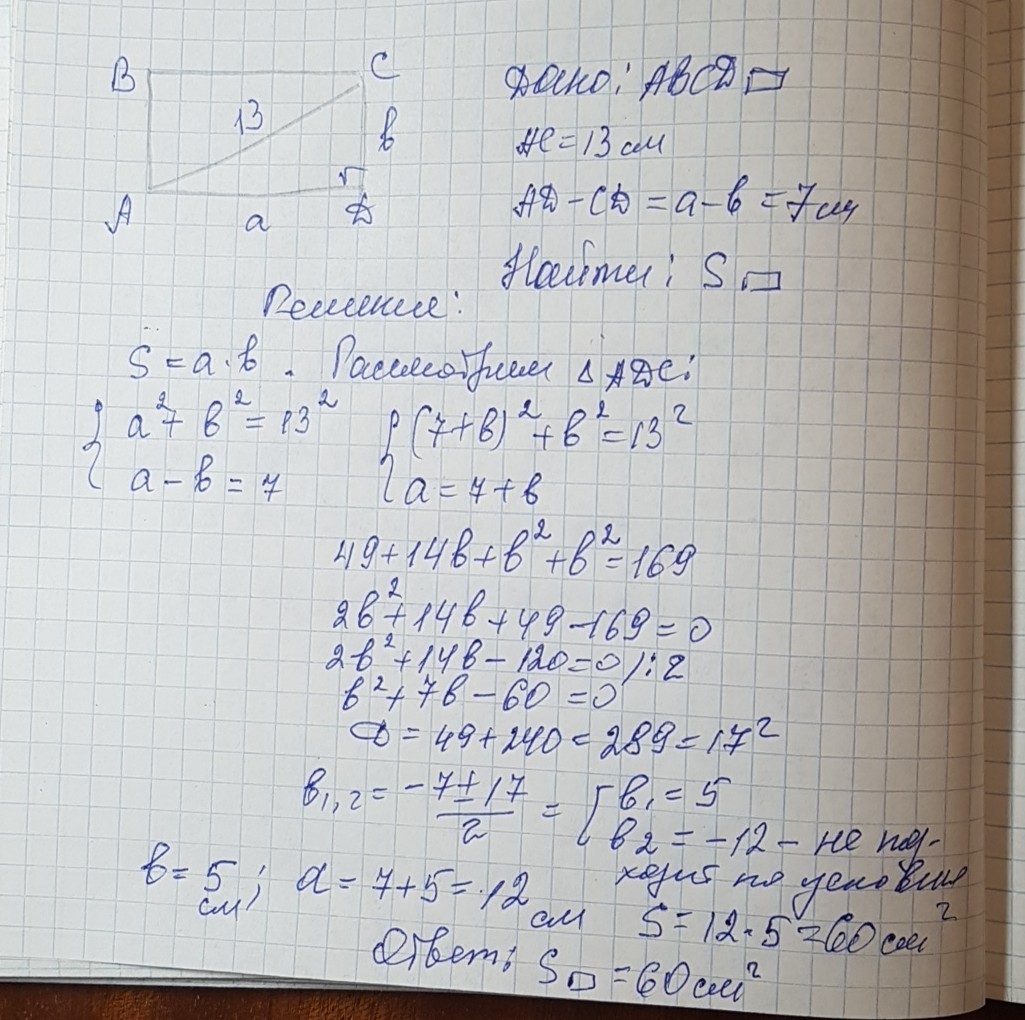 B C Дано: ABCD ▭
13 в AC = 13 см
A a D AD - CD = a - в = 7 см
Найти: S ▭
Решение:
S = a · в . Рассмотрим △ ADC:
{ a² + в² = 13² { (7+в)² + в² = 13²
{ a - в = 7 { a = 7 + в
49 + 14в + в² + в² = 169
2в² + 14в + 49 - 169 = 0
2в² + 14в - 120 = 0 / : 2
в² + 7в - 60 = 0
D = 49 + 240 = 289 = 17²
в₁,₂ = (-7 ± 17)/2 = [ в₁ = 5
в₂ = -12 - не под-
ходит по условию
в = 5 см; a = 7 + 5 = 12 см S = 12 · 5 = 60 см²
Ответ: S ▭ = 60 см²